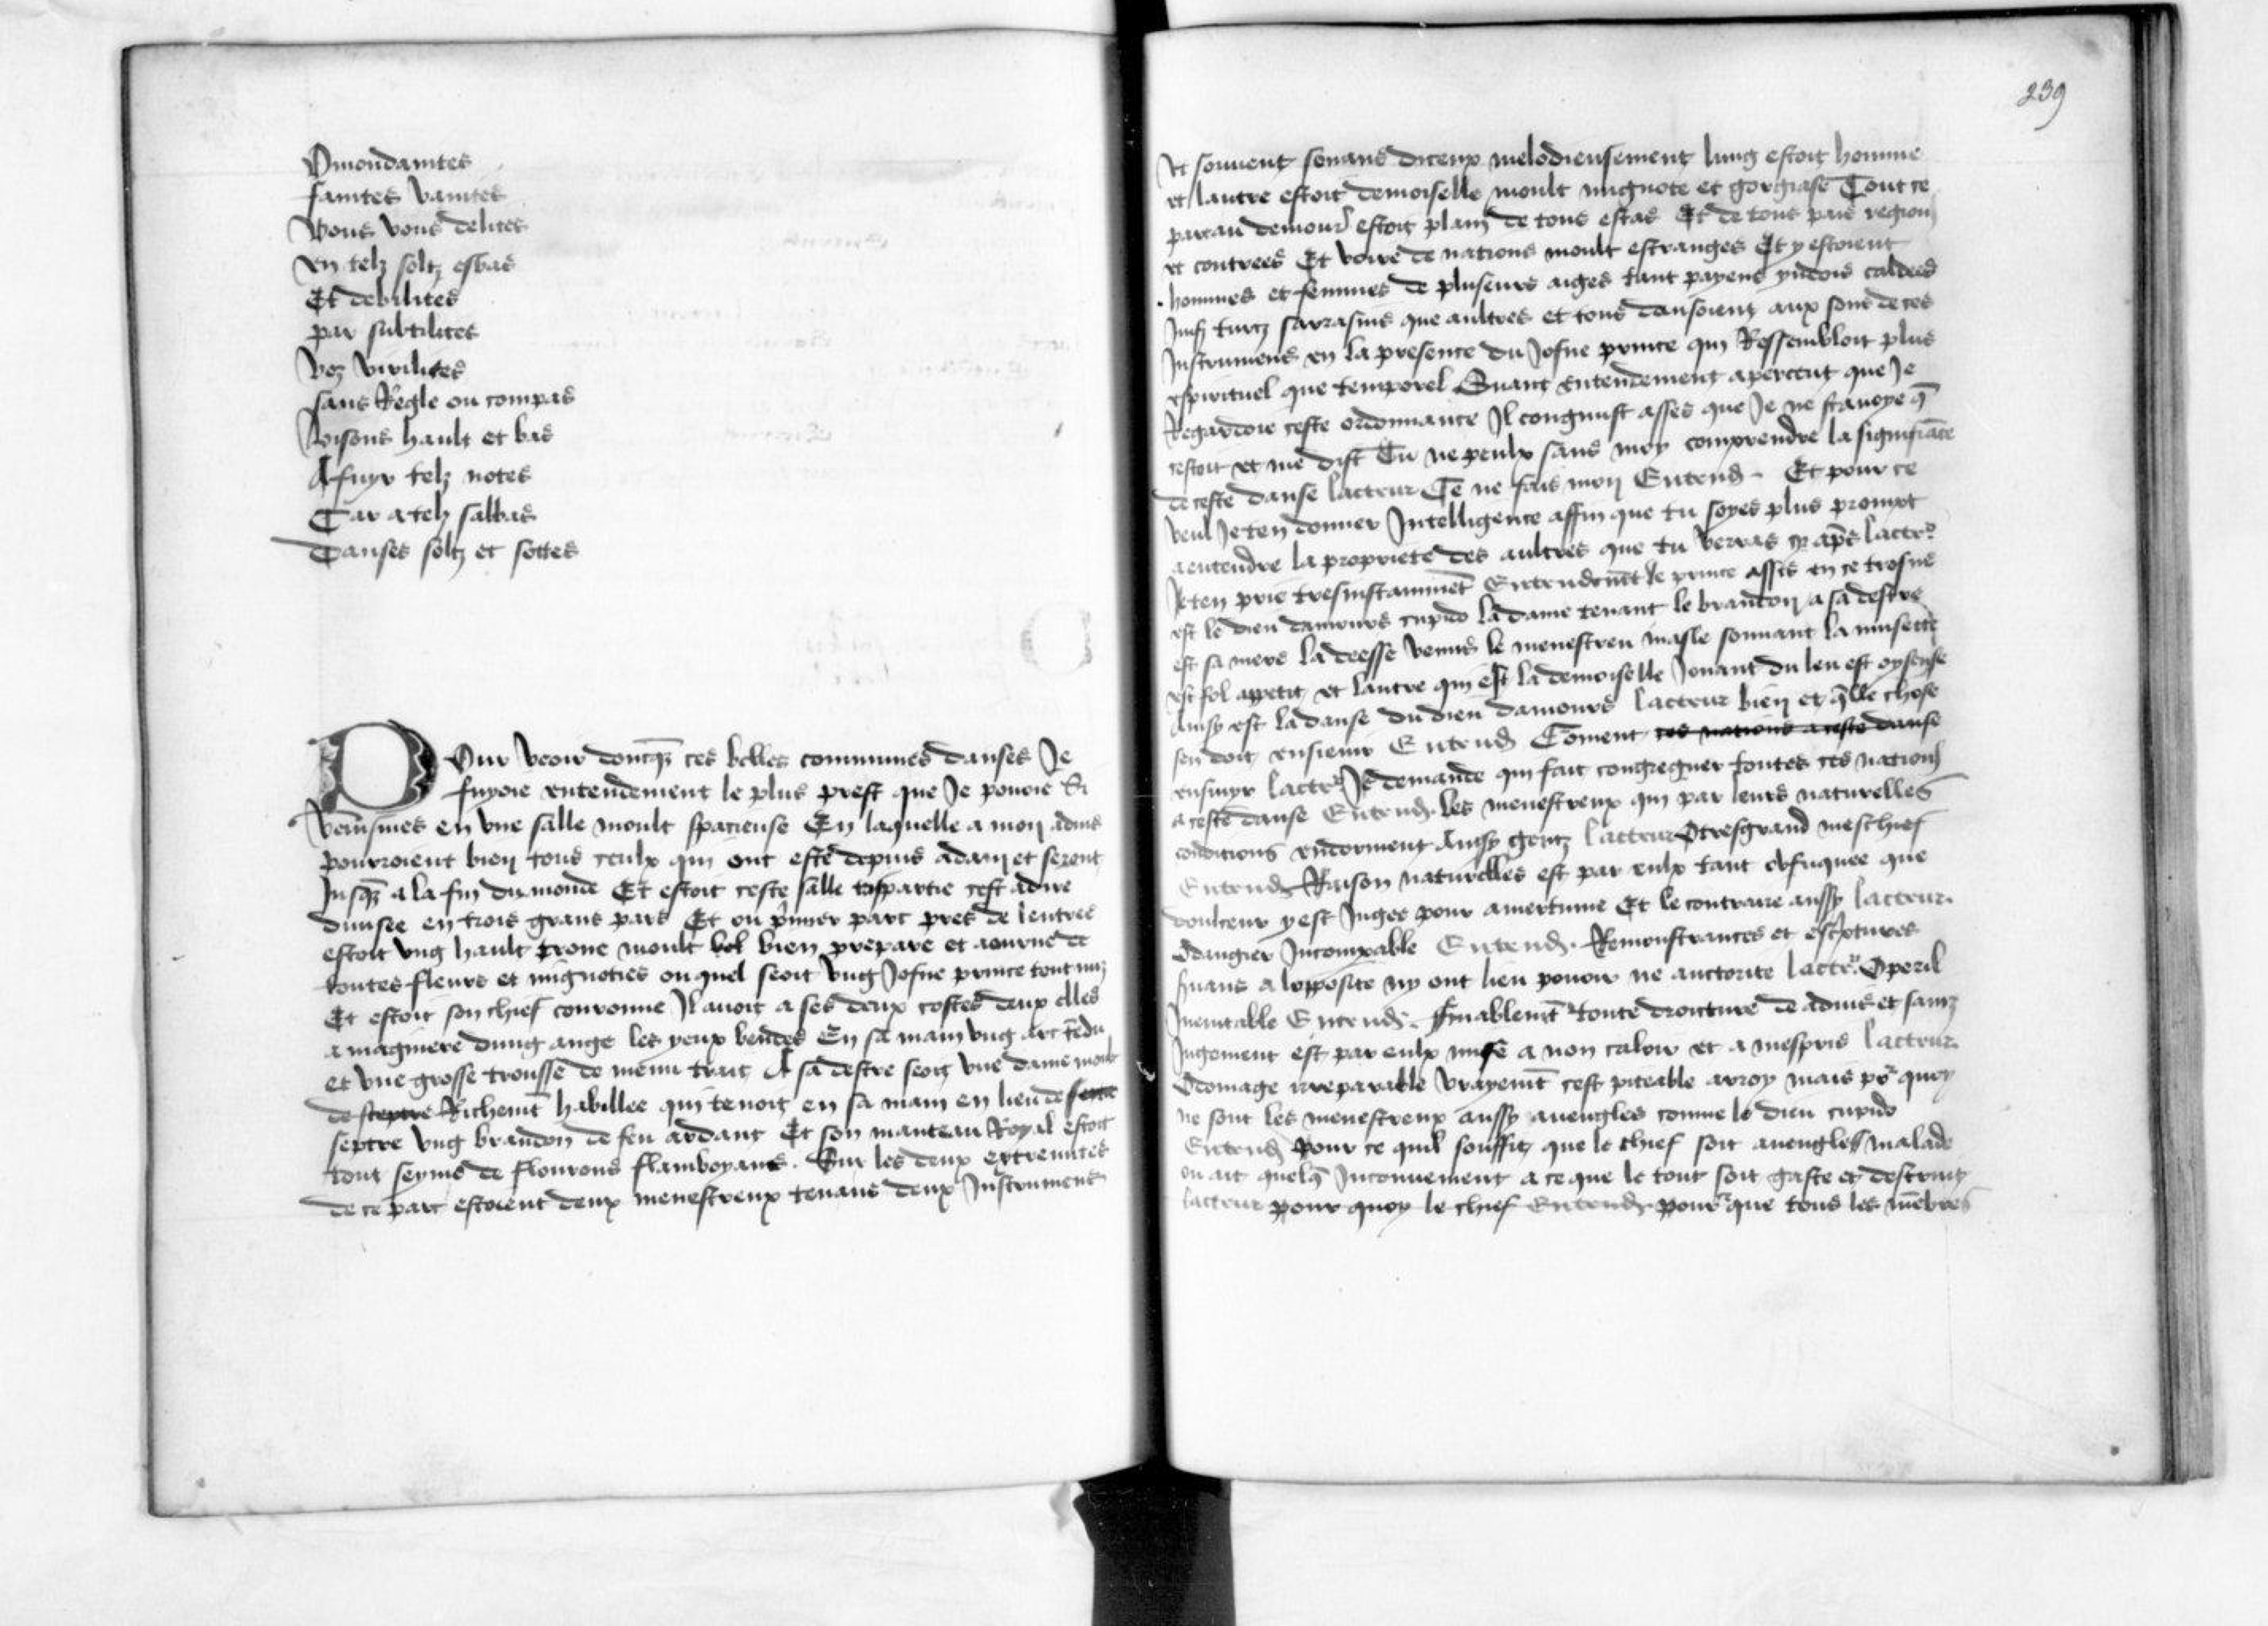 O mondanites
faintes vanites
Vous vous delites
en telz foltz esbas
Et debilites
par subtilites
Voz virilites
sans Regle ou compas
Visons hault et bas
A fuyr telz notes
Car a telz sabbas
Danses foltz et sottes
POur veoir doncq̄s ces belles communes danses Je
suyvoie entendement le plus prest que Je povoie Si
venismes en une salle moult spacieuse En laquelle a mon advis
pourroient bien tous ceulx qui ont este depuis adam et seront
Jusq̄s a la fin du monde Et estoit ceste salle tripartie cest adire
divisee en trois grans pars Et ou p̄mier parc pres de lentree
estoit ung hault trone moult bien prepare et aourne de
toutes fleurs et mignoties ou quel seoit ung Josne prince tout nuz
Et estoit son chief couronne Il avoit a ses deux costes deux elles
a magniere dung ange les yeux bendes En sa main ung arc tēdu
et une grosse trousse de menu trait A sa destre seoit une dame moult
de sceptre Richemt̄ habillee qui tenoit en sa main en lieu de
septre ung brandon de feu ardant Et son manteau Royal estoit
tout semé de flourons flamboyans. Sur les deux extremites
de ce parc estoient deux menestreux tenans deux Instrumens
239
Et souvent sonans diceux melodieusement lung estoit homme
et lautre estoit demoiselle moult mignote et gorgiase Tout ce
parc au demour̄ estoit plain de tous estas Et de tous pais region
et contrees Et voire de nations moult estranges Et y estoient
hommes et femmes de pluseurs aiges tant payens yndois caldees
Juifz turcz sarrasins que aultres et tous dansoient aux sons de ces
Instrumens en la presence du Josne prince qui Ressembloit plus
espirituel que temporel Quant Entendement apercent que Je
Regardoie ceste ordonnance Il congnust asses que Je ne scavoye q̄
cestoit et me dist Tu ne peulx sans moy comprendre la signifiāce
de ceste danse lacteur Ce ne fais mon Entend. Et pour ce
veul Je ten donner Intelligence affin que tu soyes plus prompt
a entendre la propriete des aultres que tu verras cy ap̄s lactr̄
Je ten prie tresinstamment̄ Entendemēt le prince assis en ce trosne
est le dieu damours cupido la dame tenant le brandon a sa destre
est sa mere la deesse venus le menestreu masle sonnant la musette
est fol appetit et lautre qui est la demoiselle Jouant du leu est oyseuse
Ainsy est la danse du dieu damours lacteur bien et q̄lle chose
sen doit ensievir Entend Coment ces nations a ceste danse
ensuyr lactr̄ Je demande qui fait congreguer toutes ces nation
a ceste danse Entend. les menestreux qui par leurs naturelles
conditions endorment Ainsy gentz lacteur O tresgrand meschief
Entend Raison naturelles est par eulx tant obfuquee que
doulceur y est Jugee pour amertume Et le contraire aussy lacteur.
O dangier Incompable Entend. Remonstrances et escriptures
suans a lopposite ny ont lieu povoir ne auctorite lactr̄ O peril
Inevitable Entend. Finablemt̄ toute droicture de advis et sainz
Jugement est par eulx mise a non caloir et a mespris lacteur
O domage irreparable vrayemt̄ cest piteable arroy mais pr̄ quoy
ne sont les menestreux aussy aveugles comme le dieu cupido
Entend pour ce quil souffit que le chief soit aveugles malade
ou ait quelq̄ Inconvenient a ce que le tout soit gaste et destruit
lacteur pour quoy le chief Entend. pour que tous les mēbres